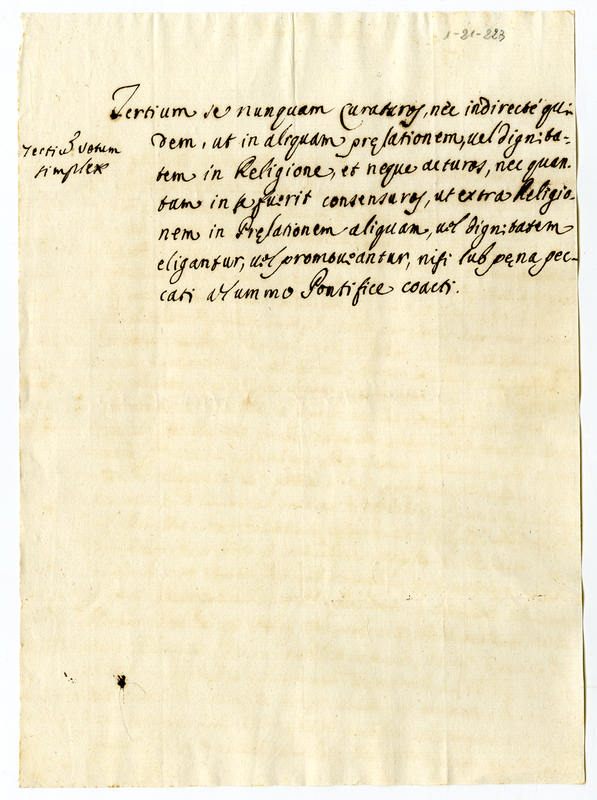 1-21-223
Tertium se nunquam curaturos, nec indirecté qui-
dem, ut in aliquam pręlationem, vel dignita-
Tertiũ votum
simplex
tem in Religione, et neque acturos, nec quan-
tum in se fuerit consensuros, ut extra Religio-
nem in Pręlationem aliquam, vel dignitatem
eligantur, vel promoveantur, nisi sub pęna pec-
cati a summo Pontifice coacti.